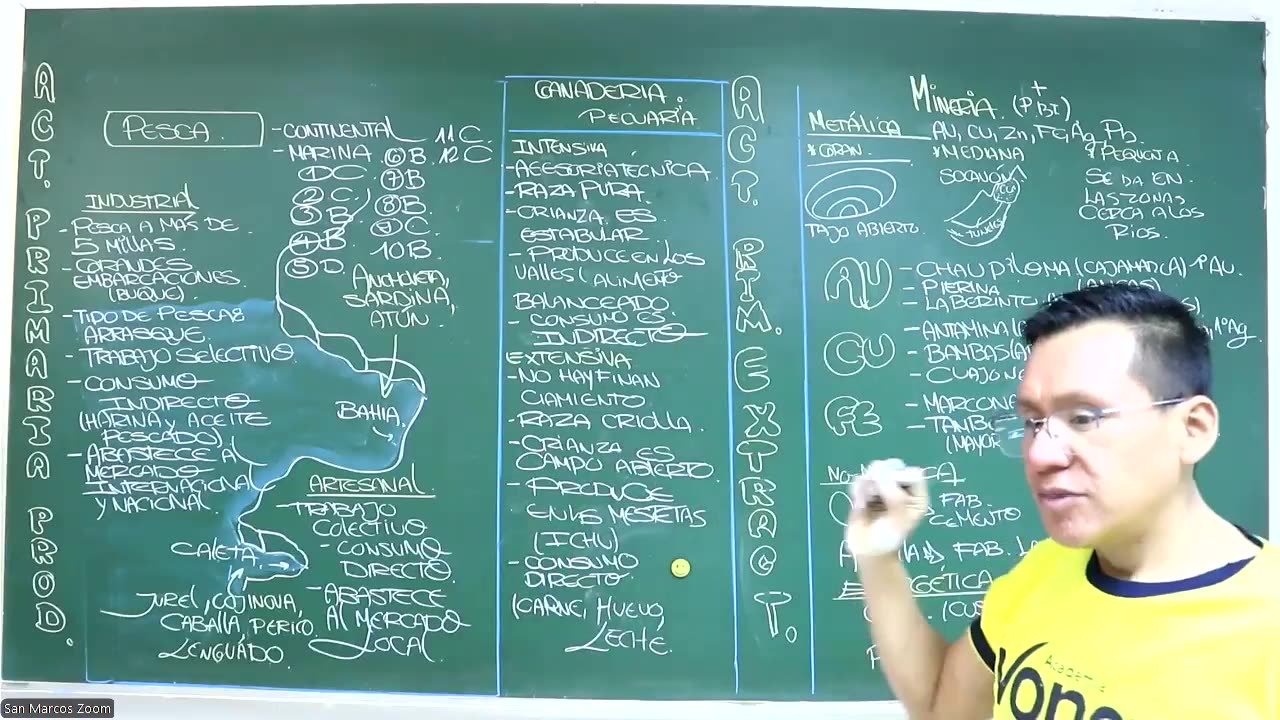 ACT. PRIMARIA PROD.
PESCA.
-CONTINENTAL
-MARINA
11C
12C
1)C.
2C.
3B
4B.
5D.
6B.
7B
8B
9C
10B
INDUSTRIAL
-PESCA A MAS DE
5 MILLAS.
-GRANDES
EMBARCACIONES
(BUQUE).
-TIPO DE PESCA:
ARRASQUE.
-TRABAJO SELECTIVO
-CONSUMO
INDIRECTO
(HARINA y ACEITE
PESCADO)
-ABASTECE Al
MERCADO
INTERNACIONAL
Y NACIONAL.
ANCHOVETA,
SARDINA,
ATÚN.
BAHIA.
ARTESANAL.
-TRABAJO
COLECTIVO
-CONSUMO
DIRECTO.
-ABASTECE
Al MERCADO
LOCAL.
CALETA
JUREL, COJINOVA,
CABALLA, PERICO,
LENGUADO.
GANADERIA.
PECUARIA
INTENSIVA
-ASESORIA TÉCNICA
-RAZA PURA.
-CRIANZA ES
ESTABULAR.
-PRODUCE EN LOS
VALLES (ALIMENTO
BALANCEADO
-CONSUMO ES
INDIRECTO
EXTENSIVA
-NO HAY FINAN
CIAMIENTO
-RAZA CRIOLLA.
-CRIANZA ES
CAMPO ABIERTO
-PRODUCE
EN LAS MESETAS
(ICHU)
-CONSUMO
DIRECTO.
(CARNE, HUEVO,
LECHE.
ACT. PRIM. EXTRACT.
MINERIA. (PBI)
+
METÁLICA
AU, CU, Zn, FE, Ag, Pb.
*GRAN.
TAJO ABIERTO.
*MEDIANA
SOCAVÓN
CU
*PEQUEÑA
SE DA EN
LAS ZONAS
CERCA A LOS
RIOS.
AU
-CHAUPILOMA (CAJAMARCA)
AU.
-PIERINA
-LABERINTO
CU
-ANTAMINA
1°Ag.
-BAMBAS
-CUAJONE
FE
-MARCONA
-TAMBO
(MAYOR
FAB.
CEMENTO
FAB.
San Marcos Zoom
Academia
Vone